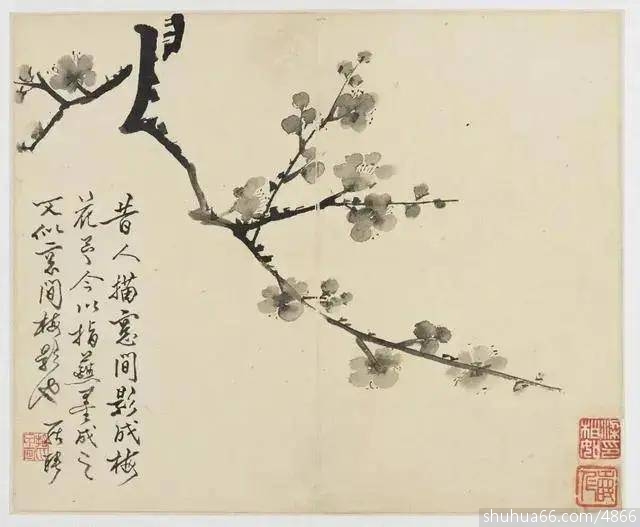 昔人描窓間影成梅
花今以指蘸墨成之
又似窓間梅影也
shuhua66.com/4866